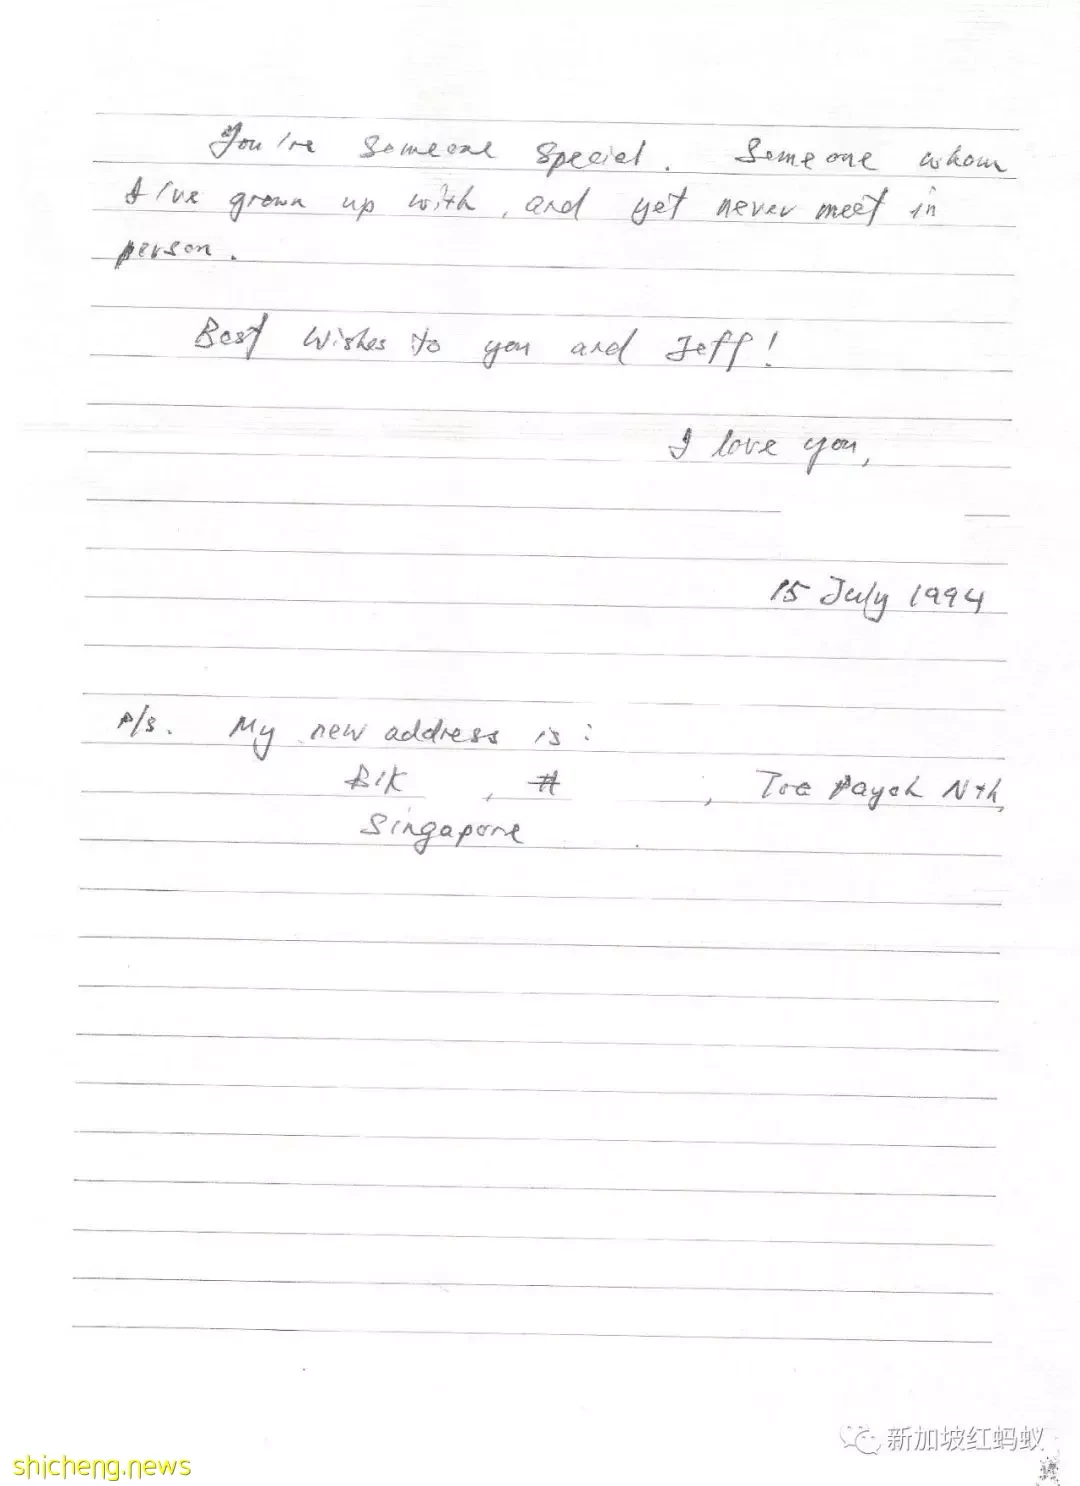 You're someone special. Someone whom
I've grown up with, and yet never meet in
person.
Best Wishes to you and Jeff!
I love you,
15 July 1994
P/s. My new address is:
Blk , # , Toa Payoh Nth,
Singapore .
新加坡红蚂蚁
shicheng.news